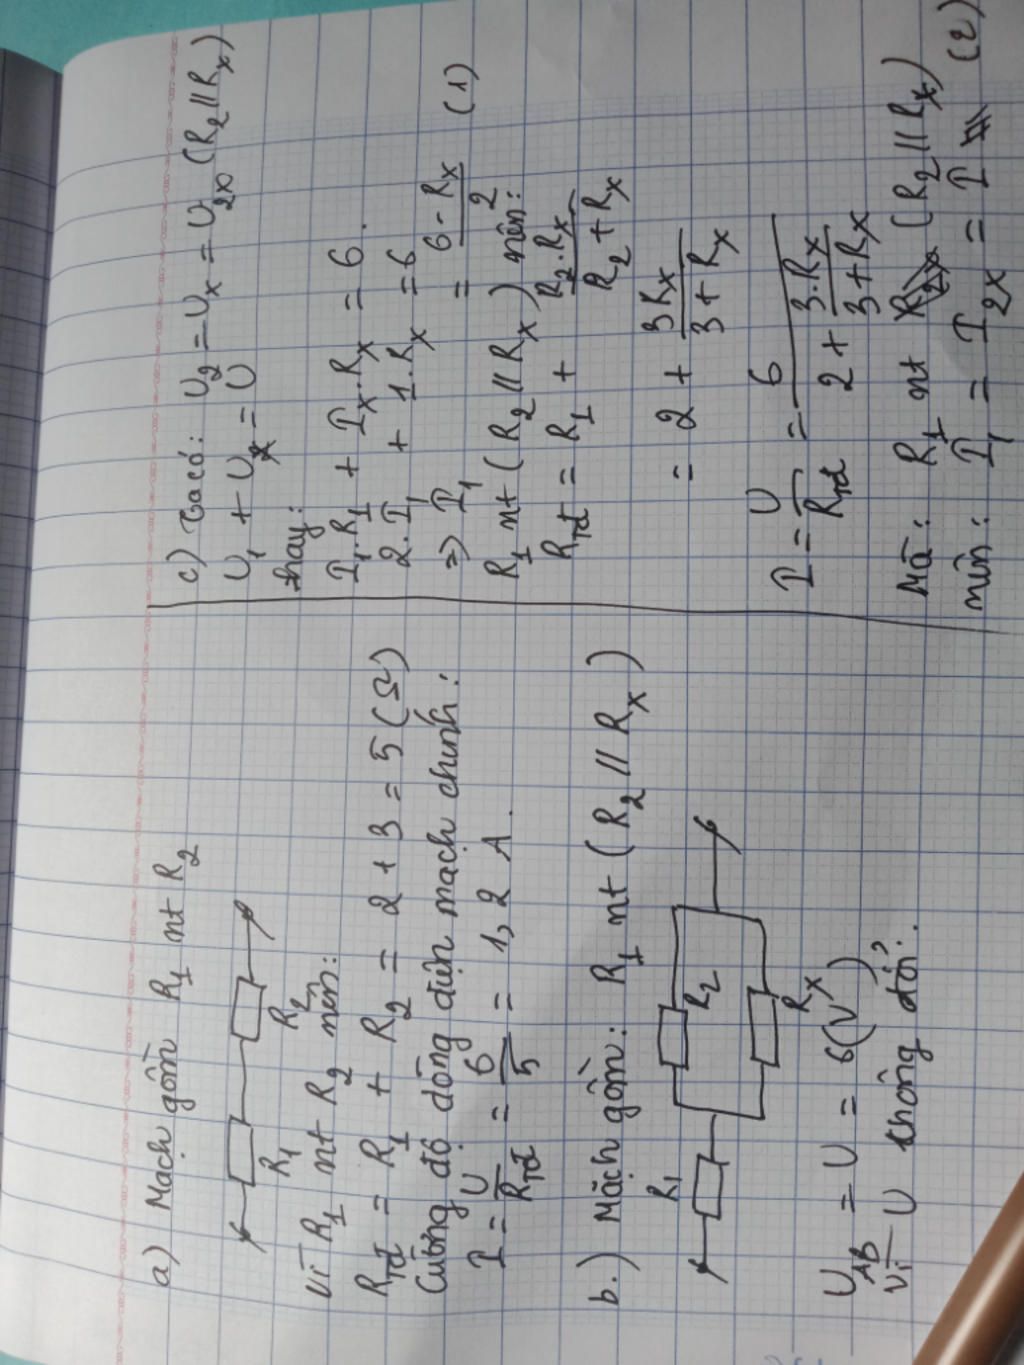 a) Mạch gồm R1 nt R2
R1 R2
Vì R1 nt R2 nên:
Rtđ = R1 + R2 = 2 + 3 = 5 (Ω)
Cường độ dòng điện mạch chính:
I = U/Rtđ = 6/5 = 1,2 A.
b.) Mạch gồm: R1 nt (R2 // Rx)
R1 R2
Rx
UAB = U = 6(V)
Vì U không đổi.
c) Ta có: U2 = Ux = U2x (R2 // Rx)
U1 + Ux = U
thay:
I1.R1 + Ix.Rx = 6.
2.I1 + 1.Rx = 6
=> I1 = (6-Rx)/2 (1)
R1 nt (R2 // Rx) nên:
Rtđ = R1 + R2.Rx/(R2 + Rx)
= 2 + 3Rx/(3 + Rx)
I = U/Rtđ = 6/(2 + 3.Rx/(3+Rx))
Mà: R1 nt (R2 // Rx)
nên: I1 = I2x = I (2)